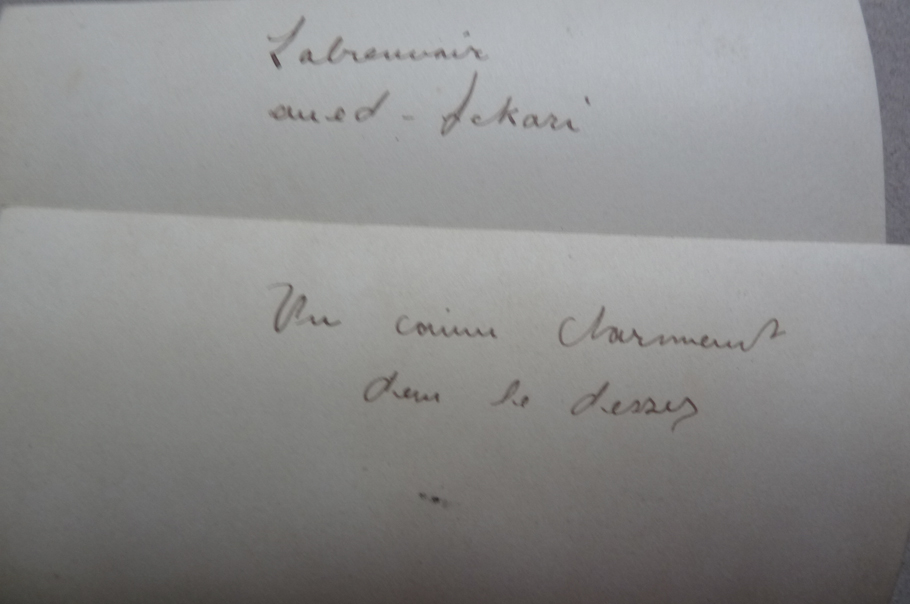 Labreuvoir
oued - Sekari
Un couin charmant
dans le desser